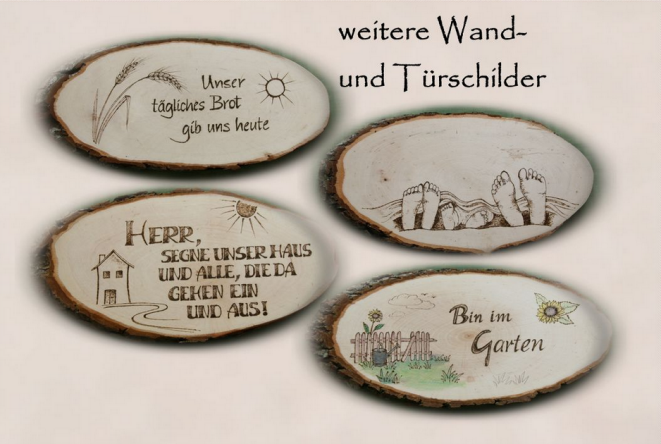 weitere Wand-
und Türschilder
Unser
tägliches Brot
gib uns heute
HERR,
SEGNE UNSER HAUS
UND ALLE, DIE DA
GEHEN EIN
UND AUS!
Bin im
Garten